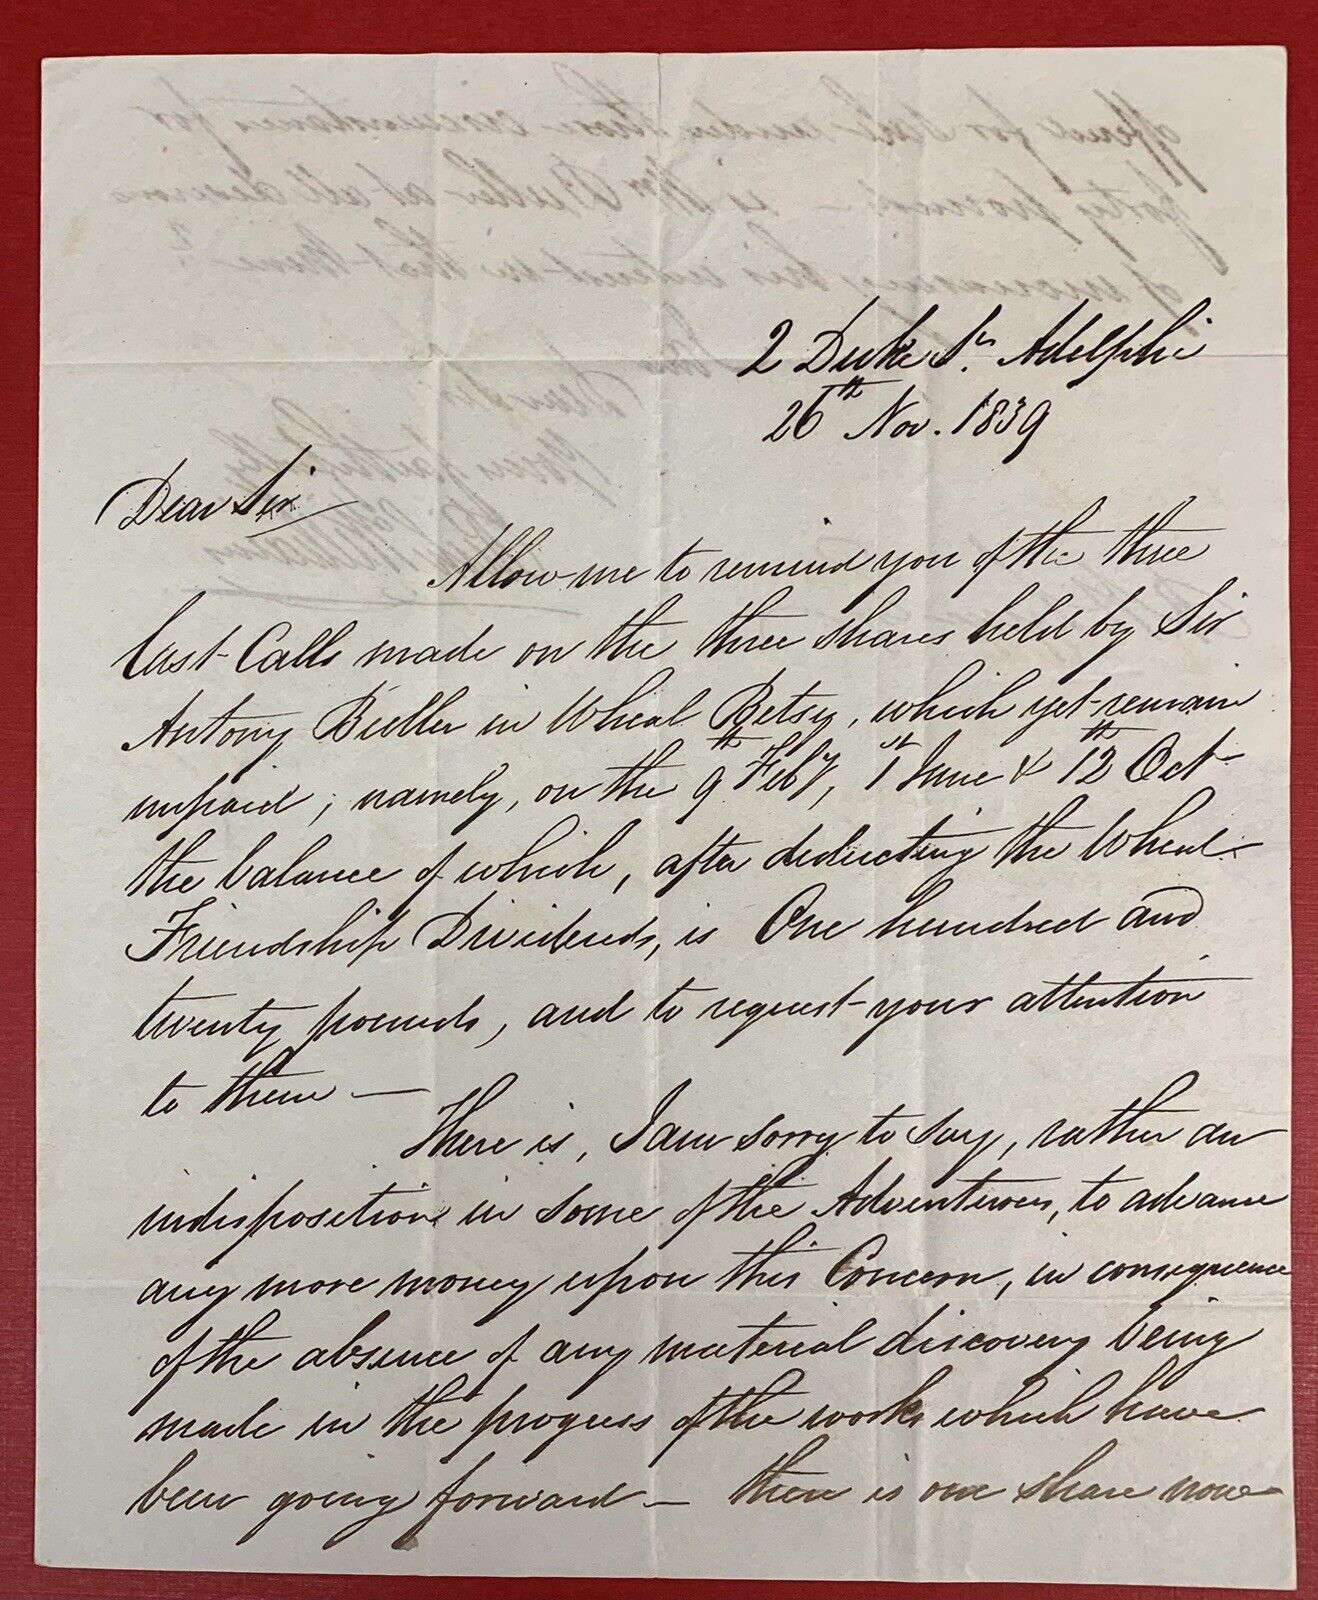 2 Duke St. Adelphi
26th Nov. 1839
Dear Sir
Allow me to remind you of the three
last Calls made on the three shares held by Sir
Antony Buller in Wheal Betsy, which yet remain
unpaid; namely, on the 9th Feby, 1st June & 12th Oct
the balance of which, after deducting the Wheal
Friendship Dividends, is One hundred and
twenty pounds, and to request your attention
to them —
There is, I am sorry to say, rather an
indisposition in some of the Adventurers, to advance
any more money upon this Concern, in consequence
of the absence of any material discovery being
made in the progress of the works which have
been going forward — there is one share now
offered for sale under these circumstances for
forty pounds — is Mr Buller at all desirous
of increasing his interest in that Mine?
I am
Dear Sir
Yours faithfully